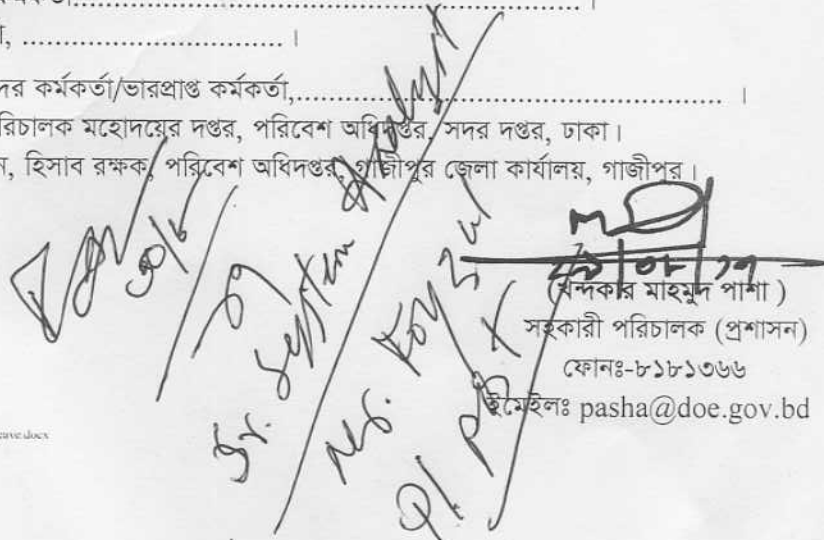 া, ............................ ।
দর কর্মকর্তা/ভারপ্রাপ্ত কর্মকর্তা,............................................................ ।
রিচালক মহোদয়ের দপ্তর, পরিবেশ অধিদপ্তর, সদর দপ্তর, ঢাকা।
ন, হিসাব রক্ষক, পরিবেশ অধিদপ্তর, গাজীপুর জেলা কার্যালয়, গাজীপুর।
Sr. System Analyst
(খন্দকার মাহমুদ পাশা )
সহকারী পরিচালক (প্রশাসন)
ফোনঃ-৮১৮১৩৬৬
ইমেইলঃ pasha@doe.gov.bd
ave.docx